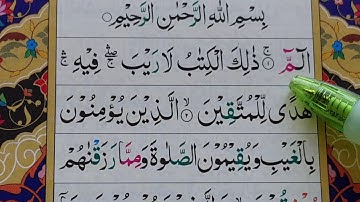 بِسْمِ اللّٰهِ الرَّحْمٰنِ الرَّحِيْمِ
الٓمّٓ ۚ ۝۱ ذٰلِكَ الْكِتٰبُ لَا رَيْبَ ۛۖۚ فِيْهِ ۛۚ
هُدًى لِّلْمُتَّقِيْنَ ۙ ۝۲ الَّذِيْنَ يُؤْمِنُوْنَ
بِالْغَيْبِ وَيُقِيْمُوْنَ الصَّلٰوةَ وَمِمَّا رَزَقْنٰهُمْ